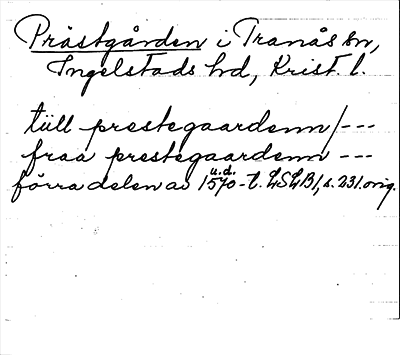 Prästgården i Tranås sn,
Ingelstads hd, Krist. l.
tiill prestegaardenn/---
fraa prestegaardenn ---
u.d.
förra delen av 1570-t. LSLB1, s. 231. orig.